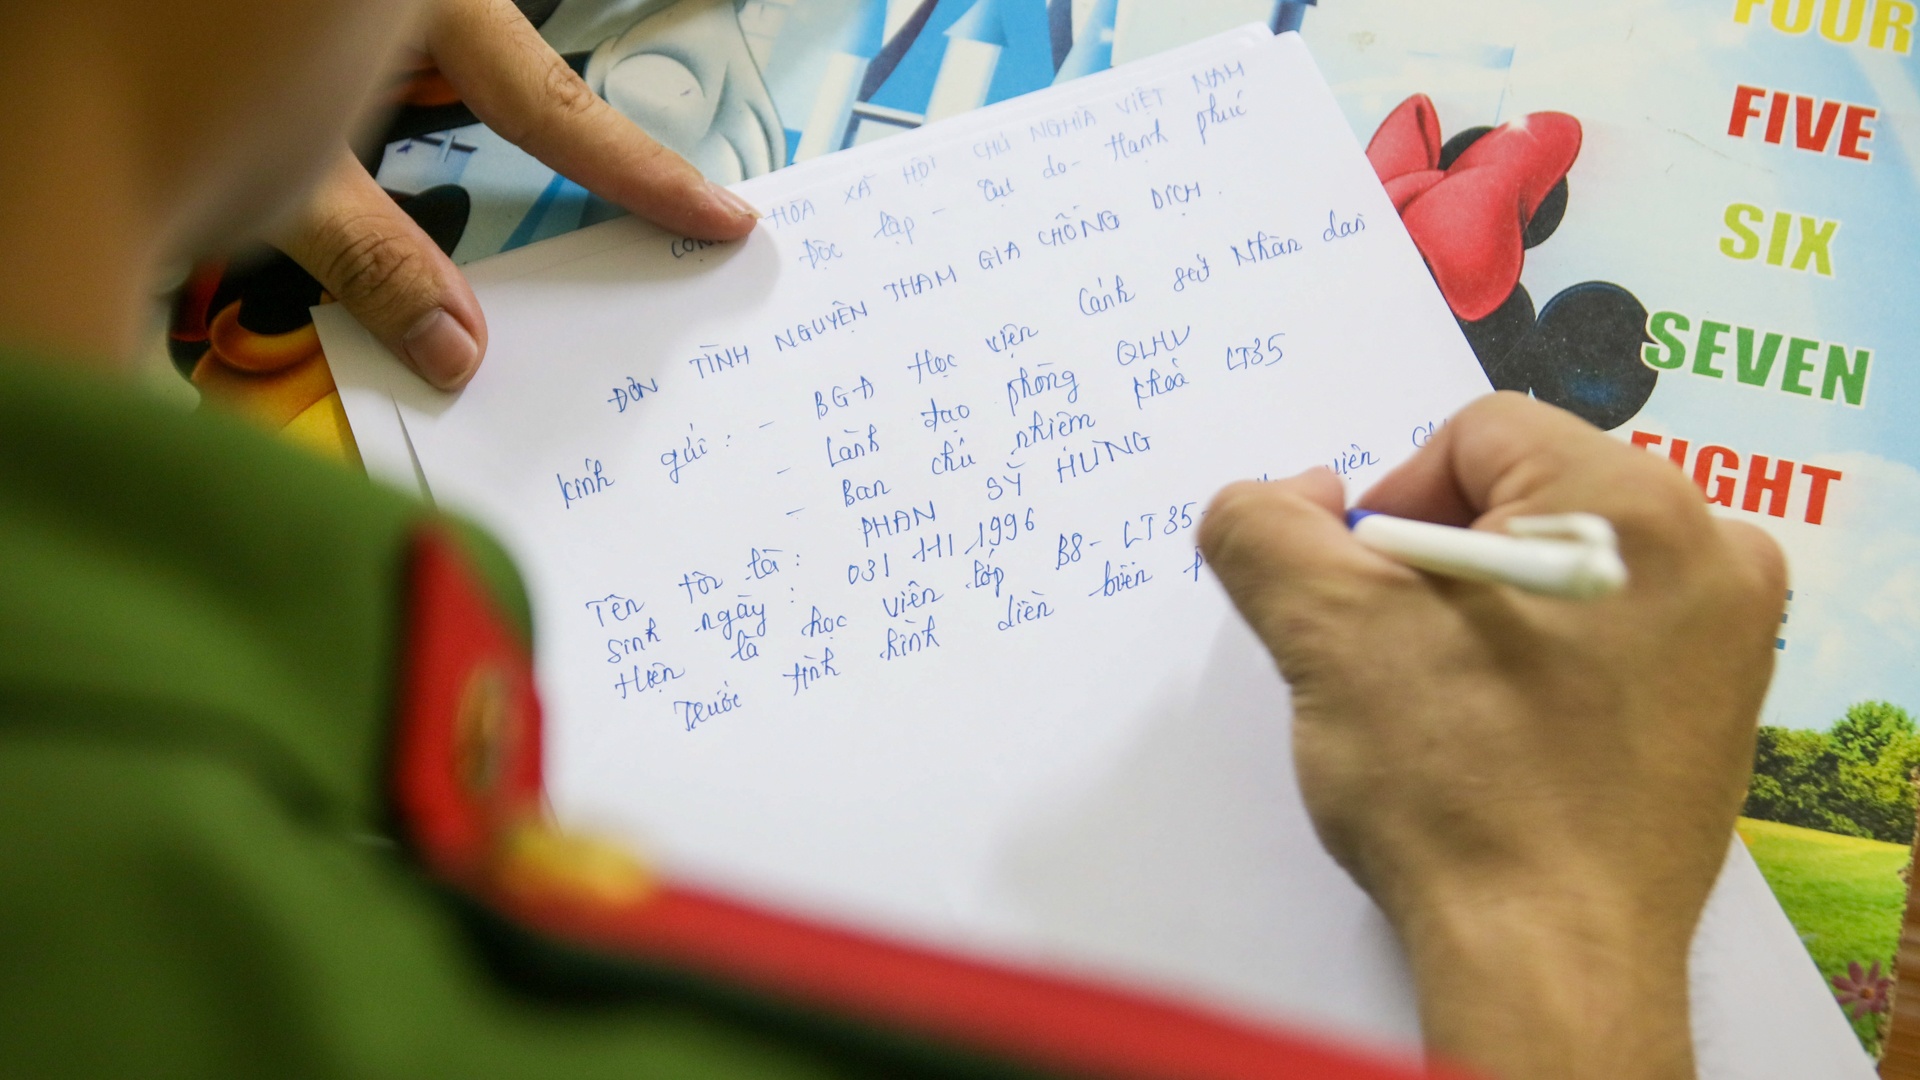 HÒA XÃ HỘI CHỦ NGHĨA VIỆT NAM
Độc lập - Tự do - Hạnh phúc
ĐƠN TÌNH NGUYỆN THAM GIA CHỐNG DỊCH.
Kính gửi: - BGĐ Học viện Cảnh sát Nhân dân
- Lãnh đạo phòng QLHV
- Ban chủ nhiệm khoá LT35
Tên tôi là: PHAN SỸ HÙNG
Sinh ngày: 03/11/1996
Hiện là học viên lớp B8-LT35- viện
Trước tình hình diễn biến
FOUR
FIVE
SIX
SEVEN
EIGHT